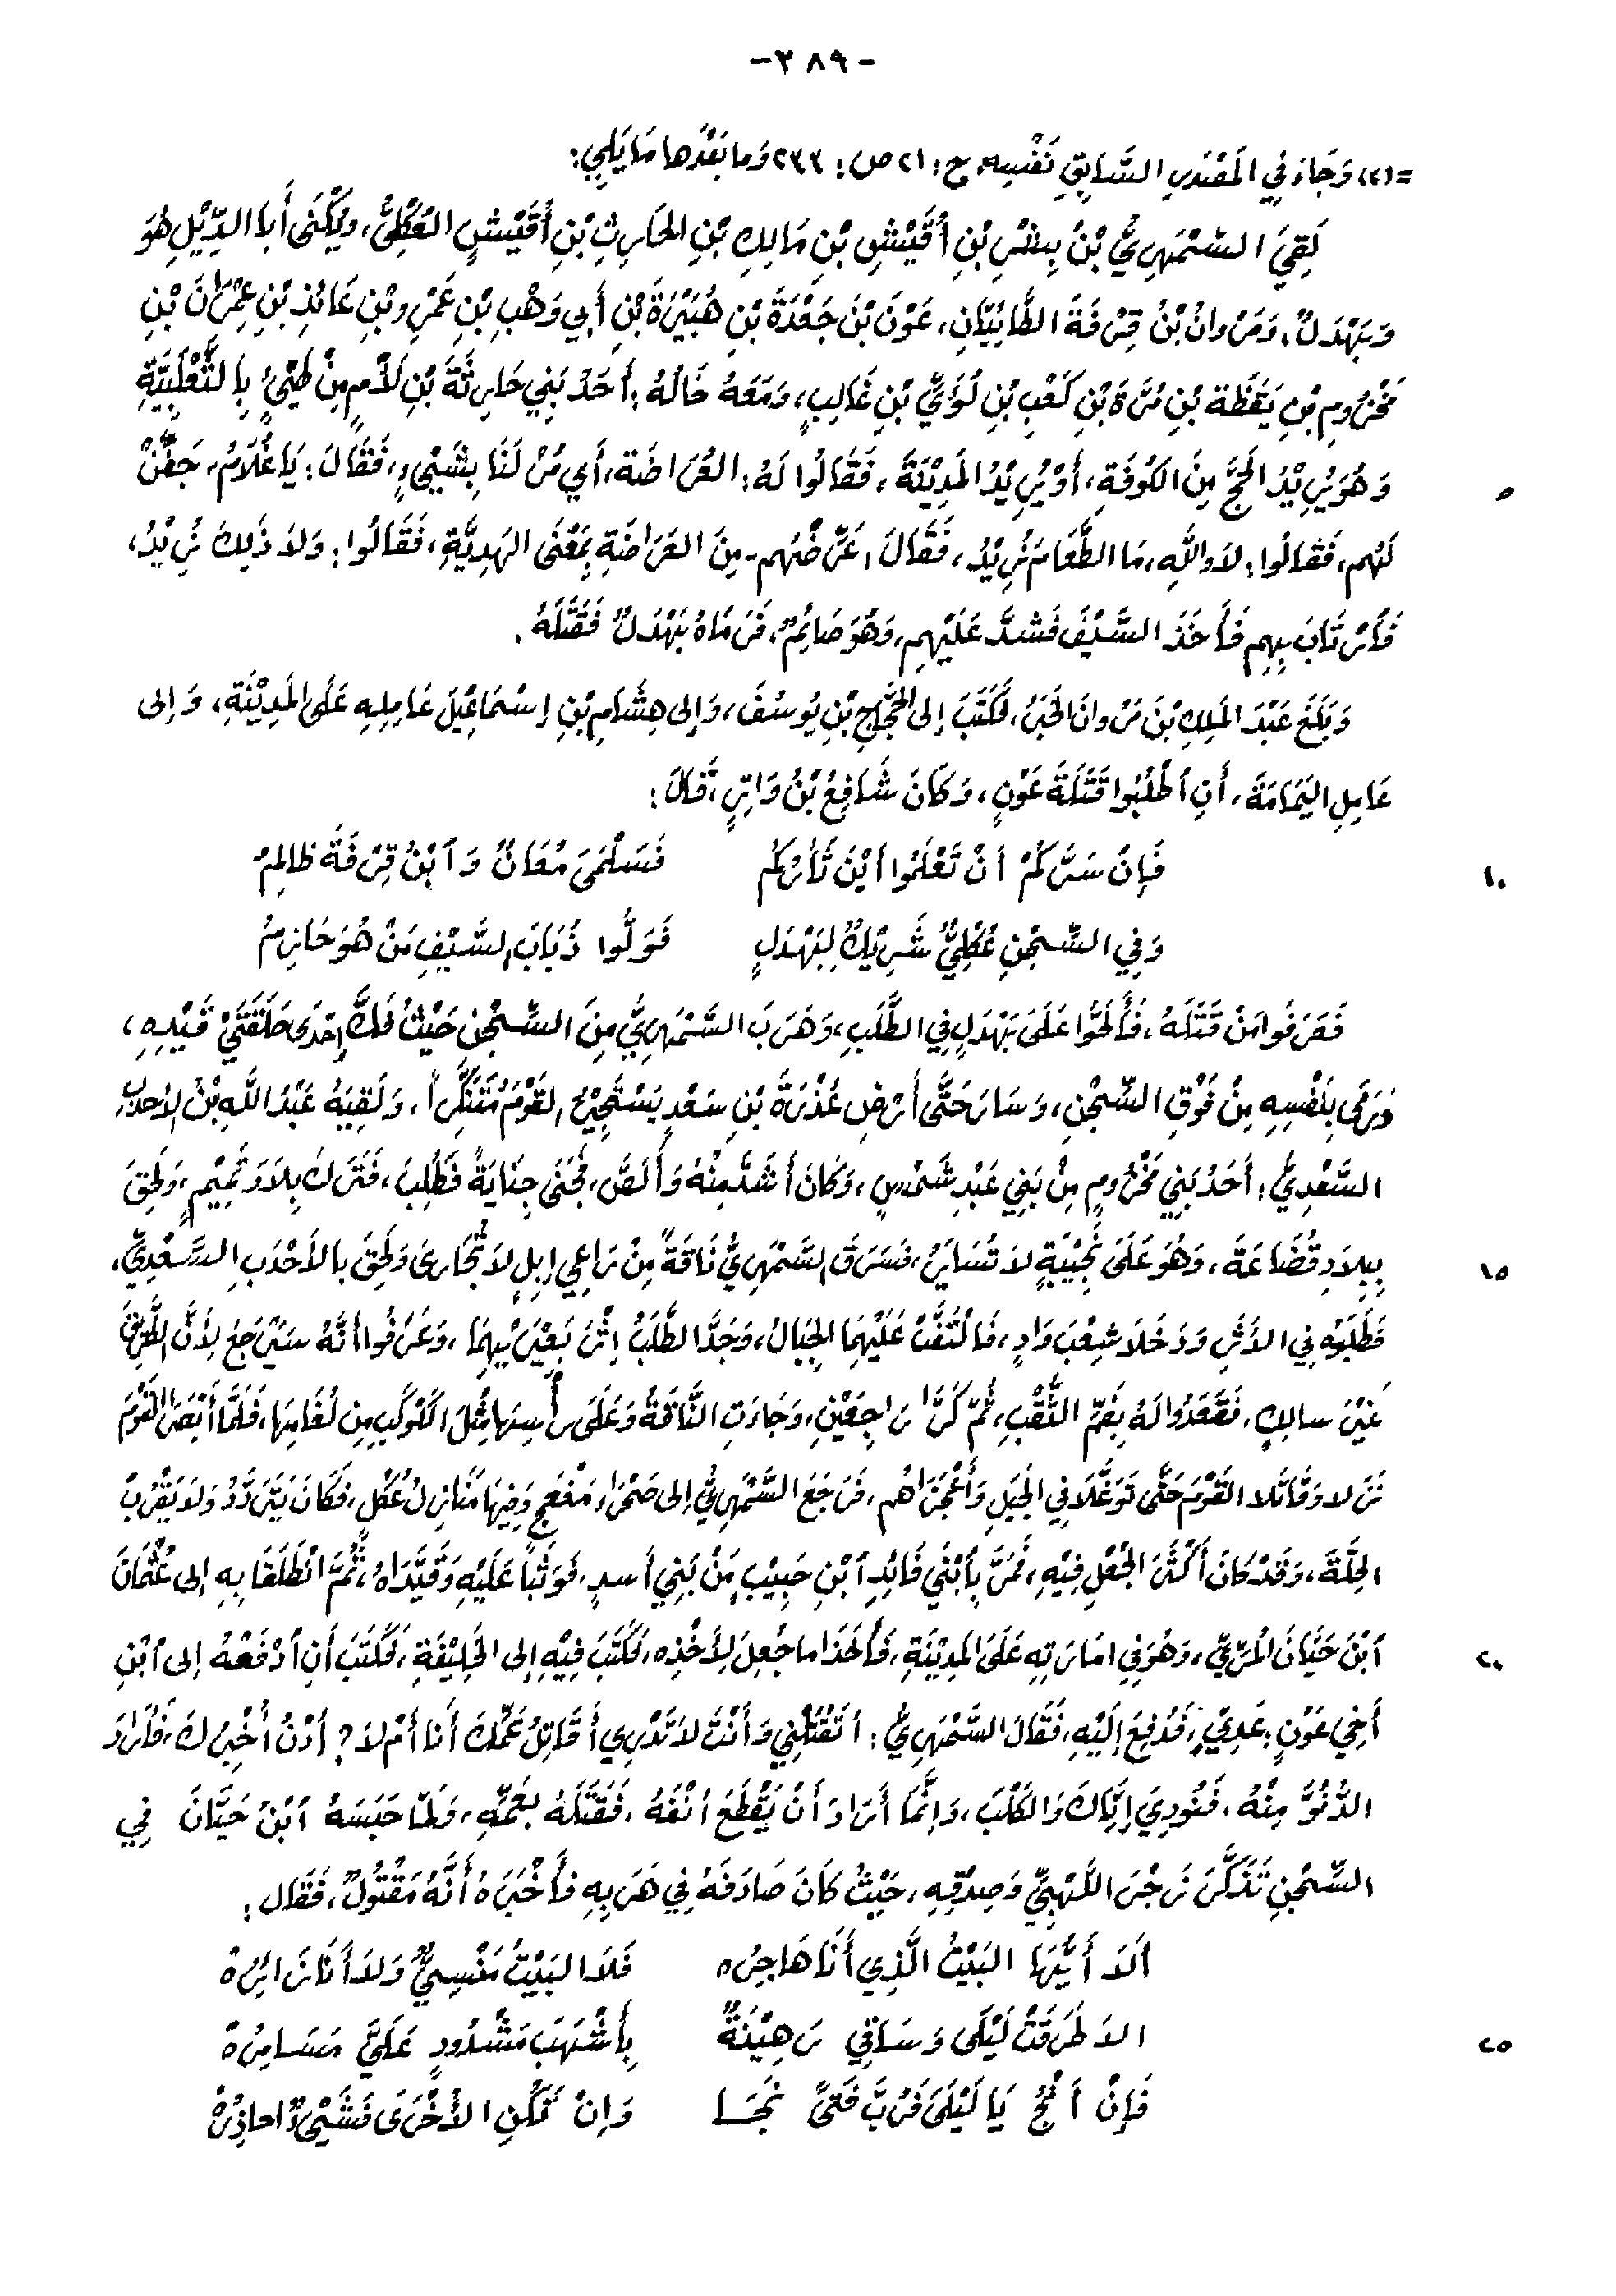 -٣٨٩-
=(٢) وَجَاءَ فِي المَصْدَرِ السَّابِقِ نَفْسِهِ ج: ٢١ ص: ٢٣٣ وَما بَعْدَها مَا يَلِي:
لَقِيَ السَّمْهَرِيُّ بْنُ بِشْرِ بْنِ أُقَيْشِ بْنِ مَالِكِ بْنِ الحَارِثِ بْنِ أُقَيْشٍ العُكْلِيُّ، وَيُكْنَى أَبَا الدِّيْلِ هُوَ
وَبَهْدَلٌ، وَمَرْوانُ بْنُ قِرْفَةَ الطَّائِيَّانِ، عَوْنَ بْنَ جَعْدَةَ بْنِ هُبَيْرَةَ بْنِ أَبِي وَهْبِ بْنِ عَمْرِو بْنِ عَائِذِ بْنِ عِمْرَانَ بْنِ
مَخْزُومِ بْنِ يَقَظَة بْنِ مُرَّةَ بْنِ كَعْبِ بْنِ لُؤَيِّ بْنِ غَالِبٍ، وَمَعَهُ خَالُهُ: أَحَدُ بَنِي حَارِثَةَ بْنِ لَأْمٍ مِنْ طَيِّئٍ بِالثَّعْلَبِيَّةِ
وَهُوَ يُرِيْدُ الحَجَّ مِنَ الكُوفَةِ، أَوْ يُرِيْدُ المَدِيْنَةَ، فَقَالُوا لَهُ: العُرَاضَة، أَي مُرْ لَنَا بِشَيْءٍ، فَقَالَ: يَا غُلَامُ، جَفِّنْ
٥
لَهُم، فَقَالُوا: لَا وَاللَّهِ، مَا الطَّعَامَ نُرِيْدُ، فَقَالَ: عَرِّضْهُم - مِنَ العَرَاضَةِ بِمَعْنَى الهَدِيَّةِ، فَقَالُوا: وَلَا ذَلِكَ نُرِيْدُ،
فَٱرْتَابَ بِهِم فَأَخَذَ السَّيْفَ فَشَدَّ عَلَيْهِم، وَهُوَ صَائِمٌ، فَرَمَاهُ بَهْدَلٌ فَقَتَلَهُ.
وَبَلَغَ عَبْدَ المَلِكِ بْنَ مَرْوانَ الخَبَرُ، فَكَتَبَ إلى الحَجَّاجِ بْنِ يُوسُفَ، وَإلى هِشَامِ بْنِ إسْمَاعِيْلَ عَامِلِهِ عَلَى المَدِيْنَةِ، وَإلى
عَامِلِ اليَمَامَةِ، أَنِ ٱطْلُبُوا قَتَلَةَ عَوْنٍ، وَكَانَ شَافِعُ بْنُ وَاتِرٍ، قَالَ:
فَإنْ سَرَّكُمْ أنْ تَعْلَمُوا أيْنَ ثَأْرُكُم فَسَلْمَى مُعَانٌ وَٱبْنُ قِرْفَةَ ظَالِمُ
١٠
وَفِي السِّجْنِ عُكْلِيٌّ شَرِيْكٌ لِبَهْدَلٍ فَوَلُّوا ذُبَابَ السَّيْفِ مَنْ هُوَ حَازِمُ
فَعَرَفُوا مَنْ قَتَلَهُ، فَأَلَحُّوا عَلَى بَهْدَلٍ فِي الطَّلَبِ، وَهَرَبَ السَّمْهَرِيُّ مِنَ السِّجْنِ حَيْثُ فَكَّ إحْدَى حَلَقَتَيْ قَيْدِهِ،
وَرَمَى بِنَفْسِهِ مِنْ فَوْقِ السِّجْنِ، وَسَارَ حَتَّى أَرْضِ عُذْرَةَ بْنِ سَعْدٍ يَسْتَجِيْرُ القَوْمَ مُتَنَكِّراً، وَلَقِيَهُ عَبْدُ اللَّهِ بْنُ الأَحْدَبِ
السَّعْدِيُّ: أَحَدُ بَنِي مَخْزُومٍ مِنْ بَنِي عَبْدِ شَمْسٍ، وَكَانَ أَشَدَّ مِنْهُ وَأَلَصَّ، فَجَنَى جِنَايَةً فَطُلِبَ، فَتَرَكَ بِلَادَ تَمِيْمٍ، وَلَحِقَ
بِبِلَادِ قُضَاعَةَ، وَهُوَ عَلَى نَجِيْبَةٍ لا تُسَايَرُ، فَسَرَقَ السَّمْهَرِيُّ نَاقَةً مِنْ رَاعِي إبِلٍ لَا تُجَارَى وَلَحِقَ بالأَحْدَبِ السَّعْدِيِّ،
١٥
فَطَلَبُوه فِي الأَثَرِ وَدَخَلَا شِعْبَ وَادٍ، فَالْتَفَّتْ عَلَيْهِمَا الجِبَالُ، وَجَدَّ الطَّلَبُ إثْرَ بَعِيْرَيْهِمَا، وَعَرَفُوا أَنَّهُ سَيَرْجِعُ لِأَنَّ الطَّرِيْقَ
غَيْرَ سالِكٍ، فَقَعَدُوا لَهُ بِفَمِ النَّقْبِ، ثُمَّ كَرَّا رَاجِعَيْنِ، وَجَاءَتِ النَّاقَةُ وَعَلَى رَأْسِهَا مِثْلُ الكَوْكَبِ مِنْ لُغَامِهَا، فَلَمَّا أَبْصَرَا القَوْمَ
نَزَلا وَقَاتَلا القَوْمَ حَتَّى تَوَغَّلَا فِي الجَبَلِ وَأَعْجَزَاهُم، فَرَجَعَ السَّمْهَرِيُّ إلى صَحْرَاءِ مَنْعَجٍ وَفِيهَا مَنَازِلُ عُكْلٍ، فَكَانَ يَتَرَدَّدُ وَلا يَقْرُبُ
الحِلَّةَ، وَقَدْ كَانَ أَكْثَرَ الجُعْلِ فِيْهِ، فَمَرَّ بِٱبْنَي فَائِدِ ٱبْنِ حَبِيْبٍ مِنْ بَنِي أَسدٍ، فَوَثَبَا عَلَيْهِ وَقَيَّدَاهُ، ثُمَّ انْطَلَقَا بِهِ إلى عُثْمَانَ
ٱبْنَ حَيَّانَ المُرِّيِّ، وَهُوَ فِي امَارَتِهِ عَلَى المَدِيْنَةِ، فَأَخَذَا ما جُعِلَ لِأَخْذِهِ، فَكَتَبَ فِيْهِ إلى الخَلِيْفَةِ، فَكَتَبَ أَنِ ٱدْفَعْهُ إلى ٱبْنِ
٢٠
أَخِي عَوْنٍ: عَدِيٍّ، فَدُفِعَ إلَيْهِ، فَقَالَ السَّمْهَرِيُّ: أتَقْتُلُنِي وَأَنْتَ لَا تَدْرِي أَقَاتِلُ عَمِّكَ أَنَا أَمْ لَا؟ اُدْنُ أُخْبِرْكَ، فَأَرَادَ
الدُّنُوَّ مِنْهُ، فَنُودِيَ إيَّاكَ وَالكَلْبَ، وَإنَّمَا أَرَادَ أَنْ يَقْطَعَ أنْفَهُ، فَقَتَلَهُ بِعَمِّهِ، وَلَمَّا حَبَسَهُ ٱبْنُ حَيَّانَ فِي
السِّجْنِ تَذَكَّرَ زَجْرَ اللَّهْبِيِّ وَصِدْقِهِ، حَيْثُ كَانَ صَادَفَهُ فِي هَرَبِهِ فأَخْبَرَهُ أَنَّهُ مَقْتُولٌ، فَقَال:
ألَا أَيُّهَا البَيْتُ الَّذِي أَنَا هَاجِرُه فَلَا البَيْتُ مَنْسِيٌّ وَلَا أَنَا زَائِرُهْ
الا طَرَقَتْ لَيْلَى وَسَاقِي رَهِيْنَةٌ بِأَشْهَبَ مَشْدُودٍ عَلَيَّ مَسَامِرُهْ
٢٥
فَإنْ أَنْجُ يَا لَيْلَى فَرُبَّ فَتىً نَجَا وَإنْ تَكُنِ الأُخْرَى فَشَيْءٌ احاذِرُهْ